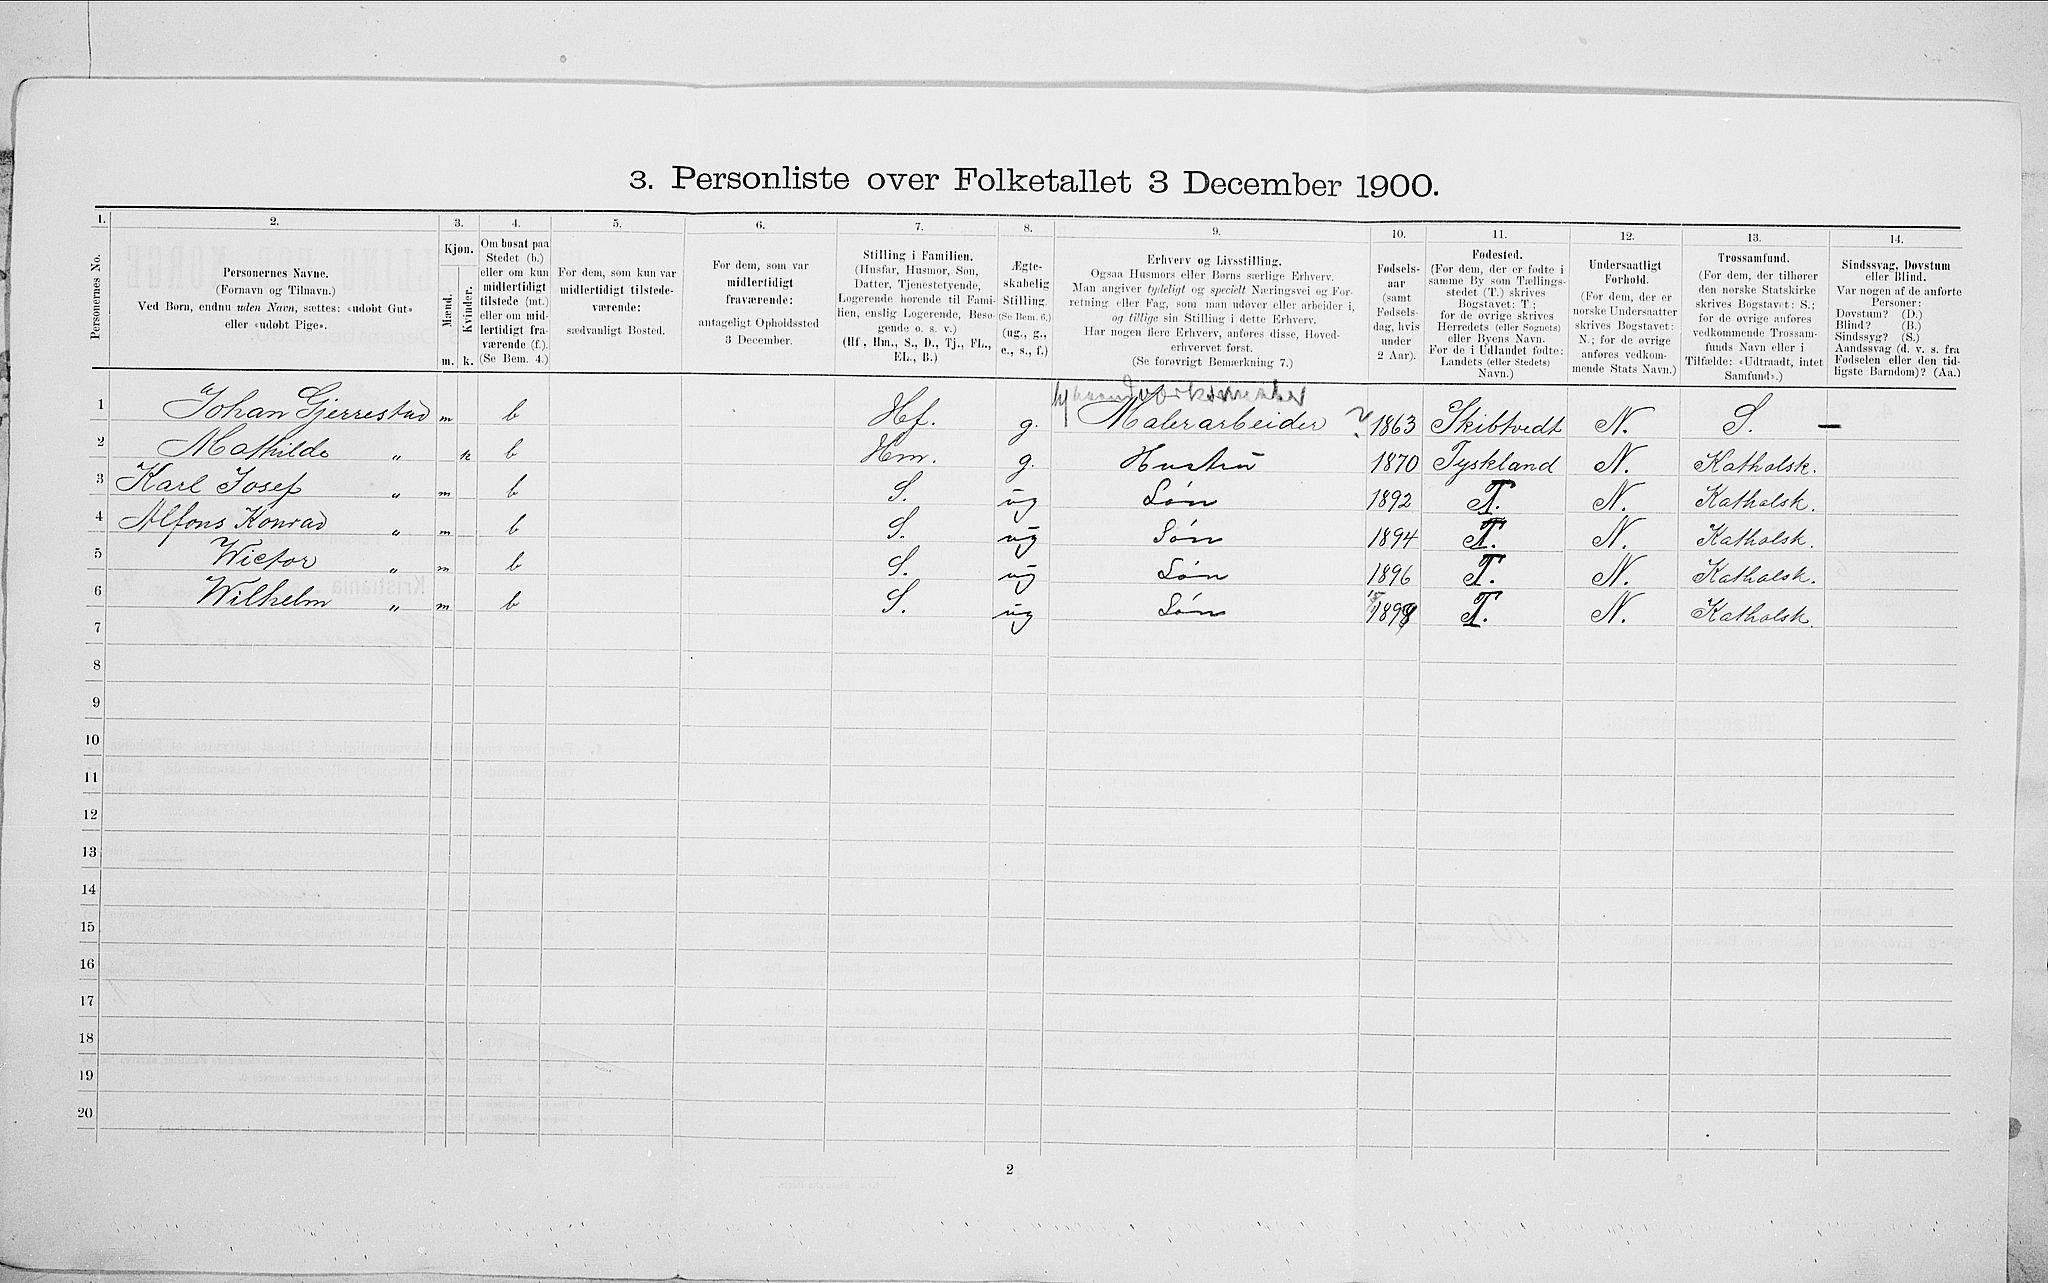 3. Personliste over Folketallet 3 December 1900.
1. 2. 3. 4. 5. 6. 7. 8. 9. 10. 11. 12. 13. 14.
Personernes No.
Personernes Navne.
(Fornavn og Tilnavn.)
Ved Børn, endnu uden Navn, sættes: «udøbt Gut»
eller «udøbt Pige».
Kjøn.
Mænd.
Kvinder.
m. k.
Om bosat paa
Stedet (b.)
eller om kun
midlertidigt
tilstede (mt.)
eller om mid-
lertidigt fra-
værende (f.).
(Se Bem. 4.)
For dem, som kun var
midlertidigt tilstede-
værende:
sædvanligt Bosted.
For dem, som var
midlertidigt
fraværende:
antageligt Opholdssted
3 December.
Stilling i Familien.
(Husfar, Husmor, Søn,
Datter, Tjenestetyende,
Logerende hørende til Fami-
lien, enslig Logerende, Besø-
gende o. s. v.)
(Hf, Hm., S., D., Tj., FL.,
EL., B.)
Ægte-
skabelig
Stilling.
(Se Bem. 6.)
(ug., g.,
e., s., f.)
Erhverv og Livsstilling.
Ogsaa Husmors eller Børns særlige Erhverv.
Man angiver tydeligt og specielt Næringsvei og For-
retning eller Fag, som man udøver eller arbeider i,
og tillige sin Stilling i dette Erhverv.
Har nogen flere Erhverv, anføres disse, Hoved-
erhvervet først.
(Se forøvrigt Bemærkning 7.)
Fødsels-
aar
(samt
Fødsels-
dag, hvis
under
2 Aar).
Fødested.
(For dem, der er fødte i
samme By som Tællings-
stedet (T.) skrives
Bogstavet: T.;
for de øvrige skrives
Herredets (eller Sognets)
eller Byens Navn.
For de i Udlandet fødte:
Landets (eller Stedets)
Navn.)
Undersaatligt
Forhold.
(For dem, der er
norske Undersaatter
skrives Bogstavet:
N.; for de øvrige
anføres vedkom-
mende Stats Navn.)
Trossamfund.
(For dem, der tilhører
den norske Statskirke
skrives Bogstavet: S.;
for de øvrige anføres
vedkommende Trossam-
funds Navn eller i
Tilfælde: «Udtraadt, intet
Samfund».)
Sindssvag, Døvstum
eller Blind.
Var nogen af de anførte
Personer:
Døvstum? (D.)
Blind? (B.)
Sindssyg? (S.)
Aandssvag (d. v. s. fra
Fødselen eller den tid-
ligste Barndom)? (Aa.)
1 Johan Gjerrestad m b Hf. g. Malerarbeider ? 1863 Skibtvedt N. S. —
2 Mathilde " k b Hm. g. Hustru 1870 Tyskland N. Katholsk.
3 Karl Josef " m b S. ug Søn 1892 T. N. Katholsk.
4 Alfons Konrad " m b S. ug Søn 1894 T. N. Katholsk.
5 Wictor " m b S. ug Søn 1896 T. N. Katholsk.
6 Wilhelm " m b S. ug Søn 1898 T. N. Katholsk.
7
8
9
10
11
12
13
14
15
16
17
18
19
20
2